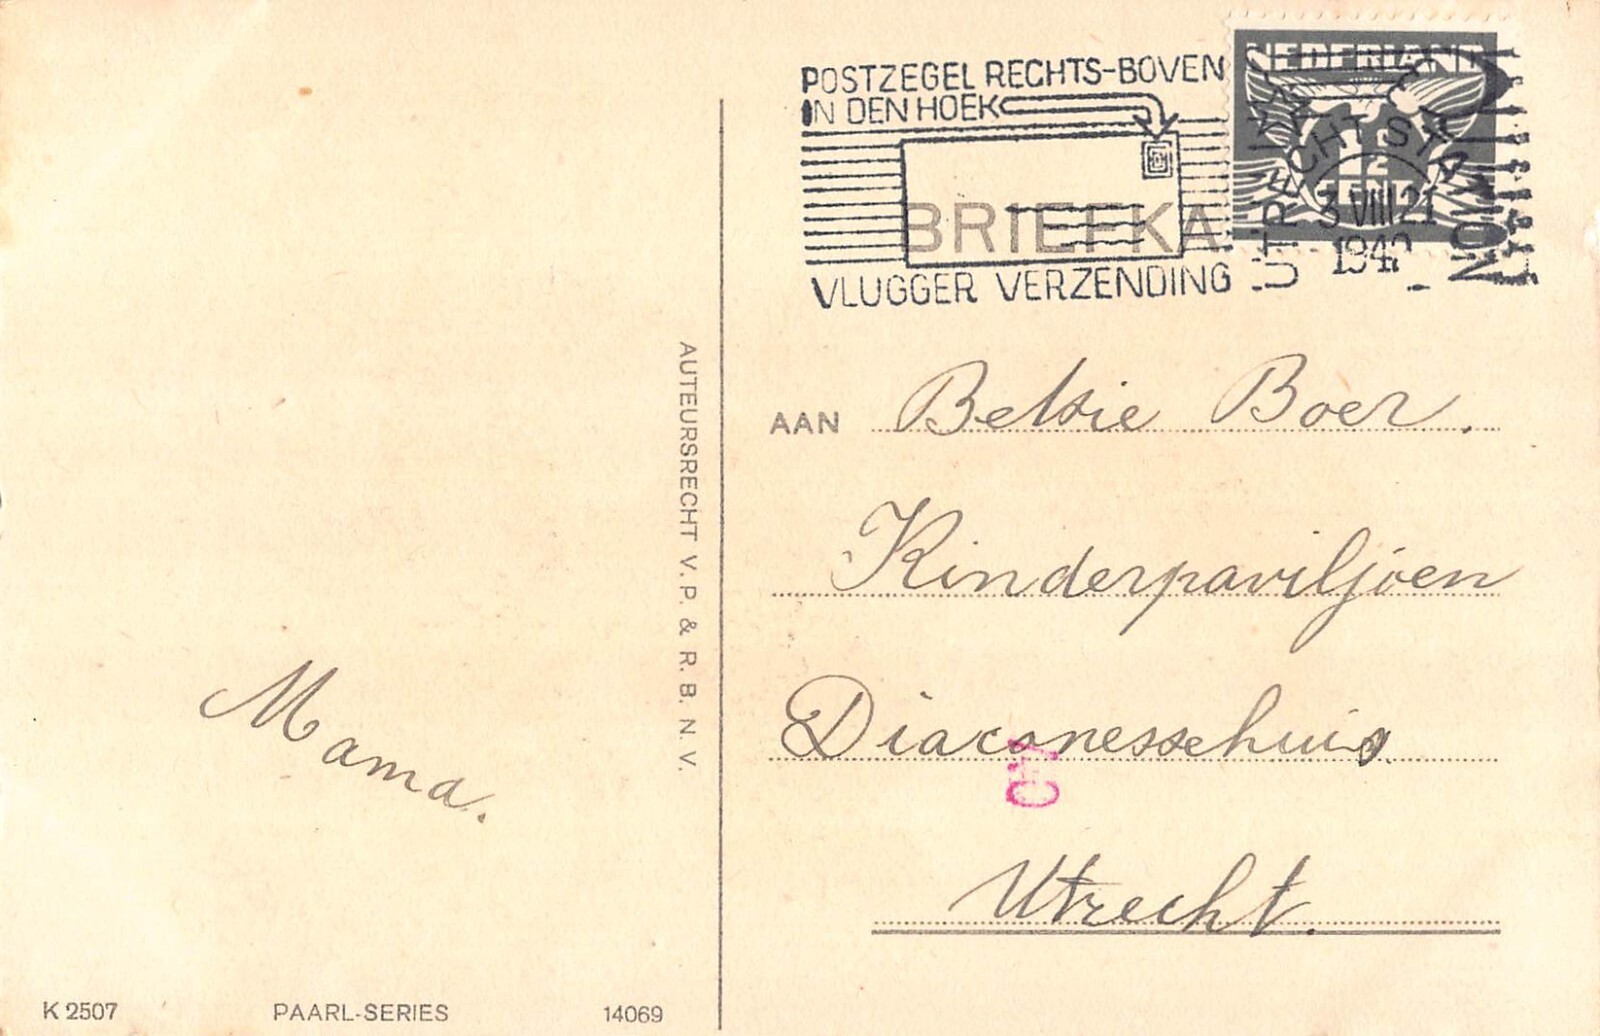 POSTZEGEL RECHTS-BOVEN
IN DEN HOEK
BRIEFKA
VLUGGER VERZENDING
NEDERLAND
UTRECHT STA
3 VIII 21
AUTEURSRECHT V. P. & R. B. N. V.
AAN Betsie Boer.
Kinderpaviljoen
Diaconessehuis
Utrecht.
Mama.
K 2507
PAARL-SERIES
14069